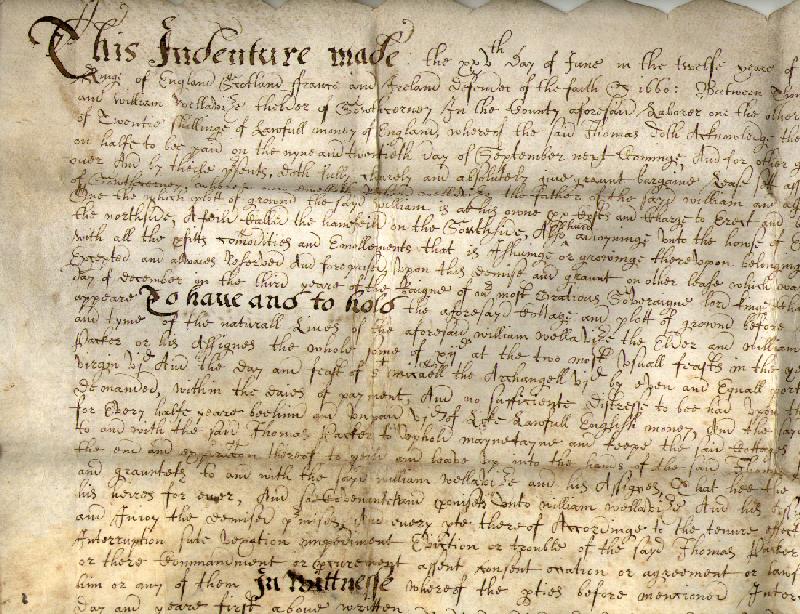 This Indenture made the xxvth day of June in the twelfe yeare of
Kinge of England Scotland ffrance and Ireland defender of the faith 1660: Betweene
and william wellavize thelder of Southcerney In the County aforesaid Laborer one the other
of Twentie shillinge of Lawfull money of England, whereof the said Thomas doth Acknowledge the
on halfe to bee paid on the nyne and twentieth day of September next Comminge, And for other
over And by these psents, doth fully, clearely and absolutely give graunt bargaine Lease
of Southcerney, the father of the said william
One the which plott of ground the said william is at his owne pp Costs and Charge to Erect and
the northside, A feild Called the hamfeild on the Southside, Also adioyninge unto the house of
with all the pfitts Comodities and Emollements that is Isshuinge or growinge there upon belonginge
Excepted and alwaies Reserved And foreprised, upon this demise and graunt on other lease which
day of december in the third yeare of the Raigne of our most Gratious Soveraigne lord kinge
appeare To have and to hold the aforesaid Cottage and plott of ground before
and tyme of the naturall Lives of the aforesaid william wellavize the Elder and william
Parker or his Assignes the whole some of xijd at the two most usuall feasts in the
virgin vjd And the day and feast of St michaell the Archangell vjd by even and Equall
demanded, within the daies of payment, And no sufficiente distresse to bee had upon
for Every halfe yeare beehind and unpaid vjd of Like Lawfull English money And the said
to and with the said Thomas Parker to uphold mayntayne and keepe the said Cottage
the end and expiration thereof to yeild and leave up into the hands of the said Thomas
and graunteth to and with the said william wellavize and his Assignes, That hee the
his heires for ever, And unto william wellavize And his
and Injoy the demised pmises, And every pte thereof Accordinge to the tenure effect
Interruption sute vexation impediment Eviction or trouble of the said Thomas Parker
or there Commandment or pcurement assent consent or agreement or
him or any of them In Wittnesse whereof the pties before mencioned
day and yeare first above written